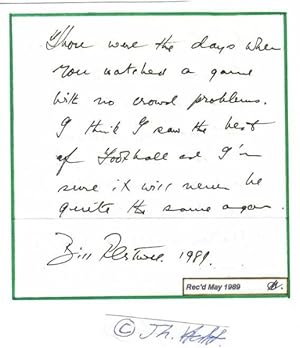 Those were the days when
you watched a game
with no crowd problems.
I think I saw the best
of football and I'm
sure it will never be
quite the same again.
Bill Pertwee. 1989.
Rec'd May 1989
© Th.